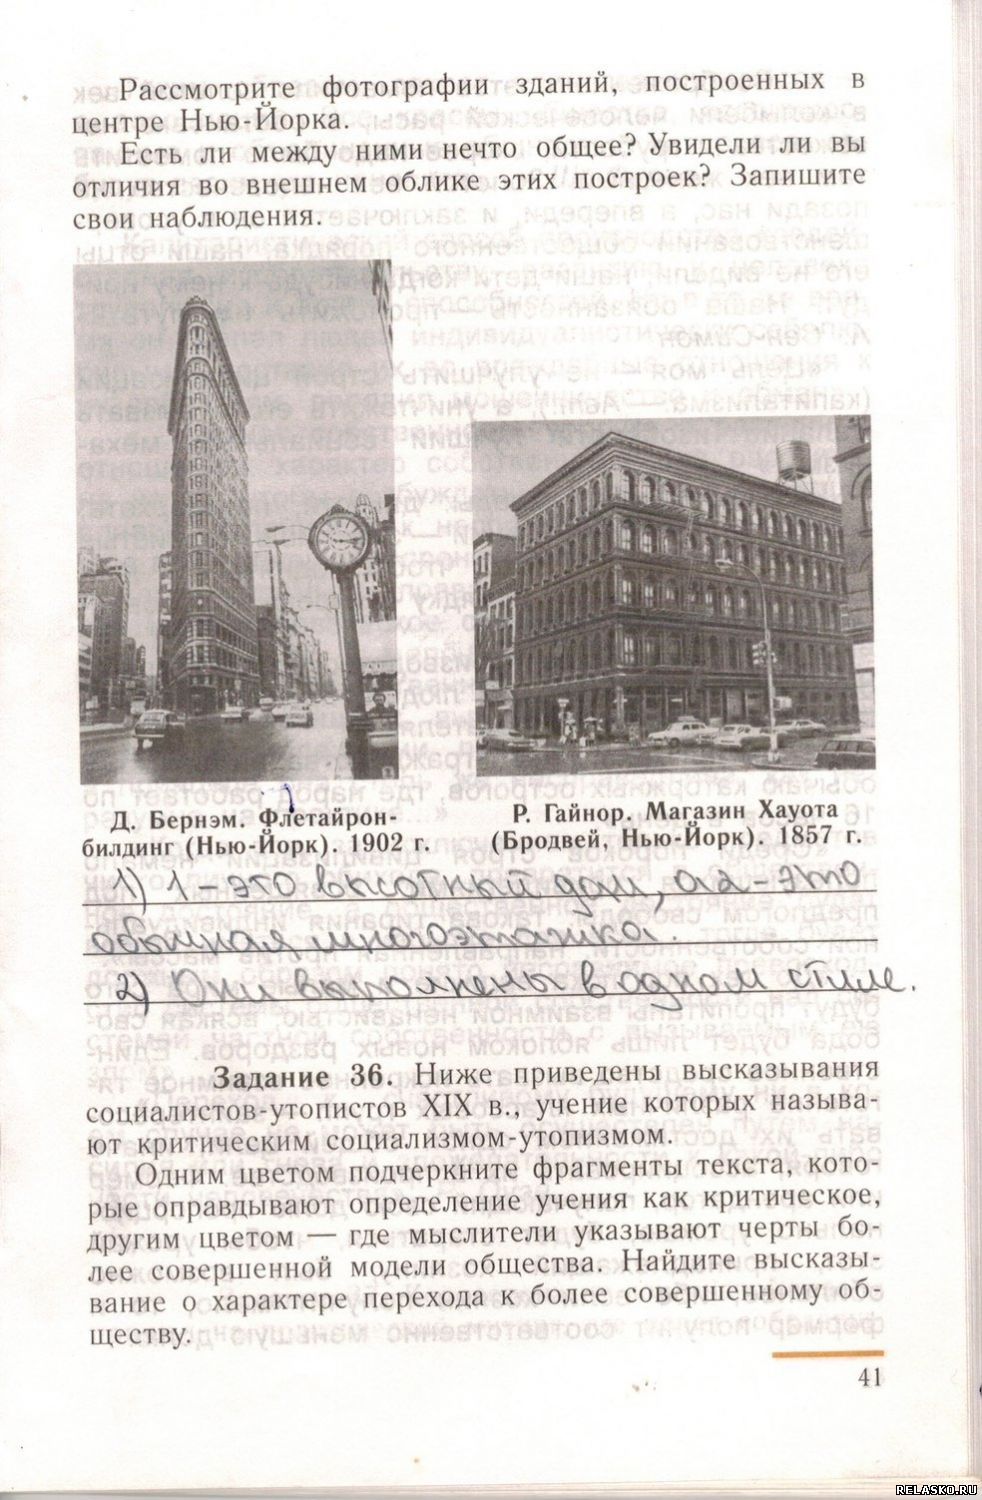 Рассмотрите фотографии зданий, построенных в
центре Нью-Йорка.
Есть ли между ними нечто общее? Увидели ли вы
отличия во внешнем облике этих построек? Запишите
свои наблюдения.
Д. Бернэм. Флетайрон-
билдинг (Нью-Йорк). 1902 г.
Р. Гайнор. Магазин Хауота
(Бродвей, Нью-Йорк). 1857 г.
1) 1 – это высотный дом, а 2 – это
обычная многоэтажка.
2) Они выполнены в одном стиле.
Задание 36. Ниже приведены высказывания
социалистов-утопистов XIX в., учение которых называ-
ют критическим социализмом-утопизмом.
Одним цветом подчеркните фрагменты текста, кото-
рые оправдывают определение учения как критическое,
другим цветом — где мыслители указывают черты бо-
лее совершенной модели общества. Найдите высказы-
вание о характере перехода к более совершенному об-
ществу.
41
RELASKO.RU